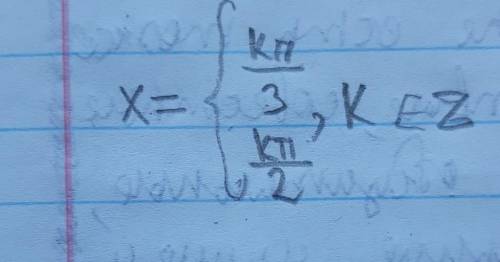 x = { kπ/3
kπ/2 , k ∈ Z